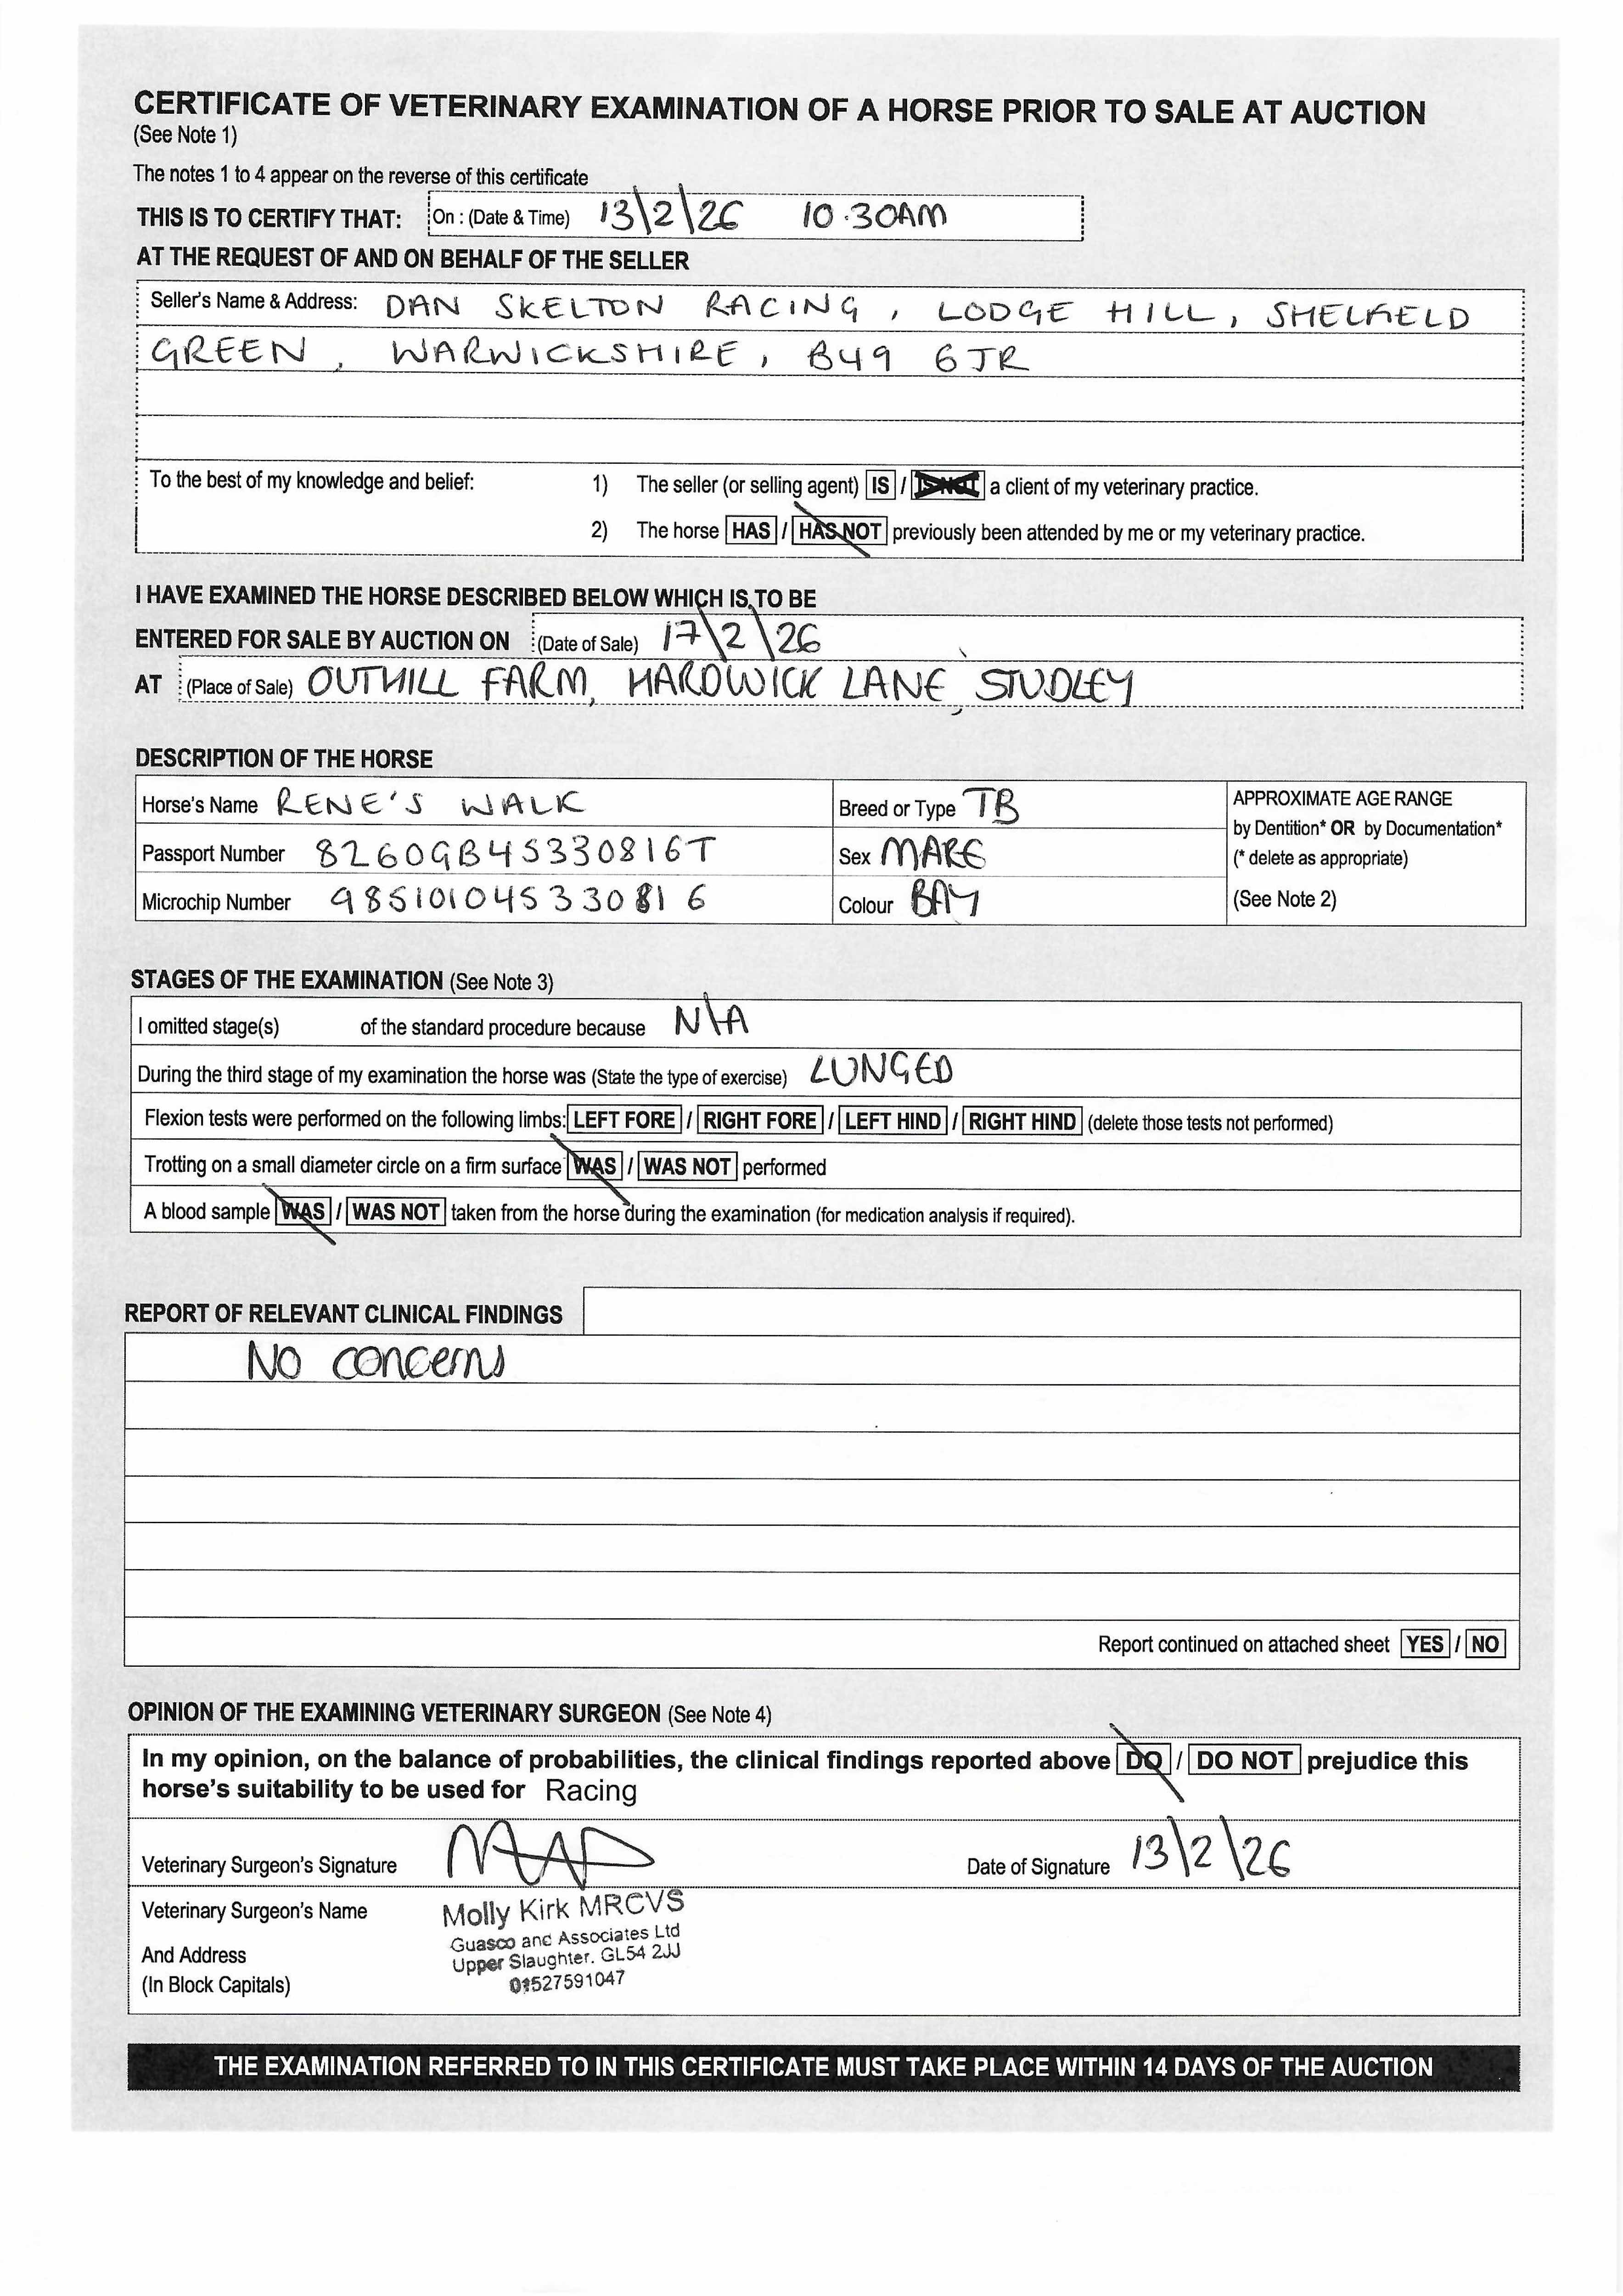 CERTIFICATE OF VETERINARY EXAMINATION OF A HORSE PRIOR TO SALE AT AUCTION
(See Note 1)
The notes 1 to 4 appear on the reverse of this certificate
THIS IS TO CERTIFY THAT: On : (Date & Time) 13\2\26 10.30AM
AT THE REQUEST OF AND ON BEHALF OF THE SELLER
Seller's Name & Address: DAN SKELTON RACING, LODGE HILL, SHELFIELD
GREEN, WARWICKSHIRE, B49 6JR
To the best of my knowledge and belief: 1) The seller (or selling agent) IS / IS NOT a client of my veterinary practice.
2) The horse HAS / HAS NOT previously been attended by me or my veterinary practice.
I HAVE EXAMINED THE HORSE DESCRIBED BELOW WHICH IS TO BE
ENTERED FOR SALE BY AUCTION ON (Date of Sale) 17\2\26
AT (Place of Sale) OUTHILL FARM, HARDWICK LANE, STUDLEY
DESCRIPTION OF THE HORSE
Horse's Name RENE'S WALK Breed or Type TB APPROXIMATE AGE RANGE
by Dentition* OR by Documentation*
Passport Number 8260GB45330816T Sex MARE (* delete as appropriate)
Microchip Number 985101045330816 Colour BAY (See Note 2)
STAGES OF THE EXAMINATION (See Note 3)
I omitted stage(s) of the standard procedure because N\A
During the third stage of my examination the horse was (State the type of exercise) LUNGED
Flexion tests were performed on the following limbs: LEFT FORE / RIGHT FORE / LEFT HIND / RIGHT HIND (delete those tests not performed)
Trotting on a small diameter circle on a firm surface WAS / WAS NOT performed
A blood sample WAS / WAS NOT taken from the horse during the examination (for medication analysis if required).
REPORT OF RELEVANT CLINICAL FINDINGS
NO concerns
Report continued on attached sheet YES / NO
OPINION OF THE EXAMINING VETERINARY SURGEON (See Note 4)
In my opinion, on the balance of probabilities, the clinical findings reported above DO / DO NOT prejudice this
horse's suitability to be used for Racing
Veterinary Surgeon's Signature Date of Signature 13\2\26
Veterinary Surgeon's Name Molly Kirk MRCVS
Guasco and Associates Ltd
And Address Upper Slaughter. GL54 2JJ
(In Block Capitals) 01527591047
THE EXAMINATION REFERRED TO IN THIS CERTIFICATE MUST TAKE PLACE WITHIN 14 DAYS OF THE AUCTION